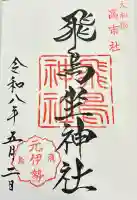 大和國
高市社
飛鳥坐神社
飛鳥
神社
令和八年五月二日
元伊勢
飛鳥